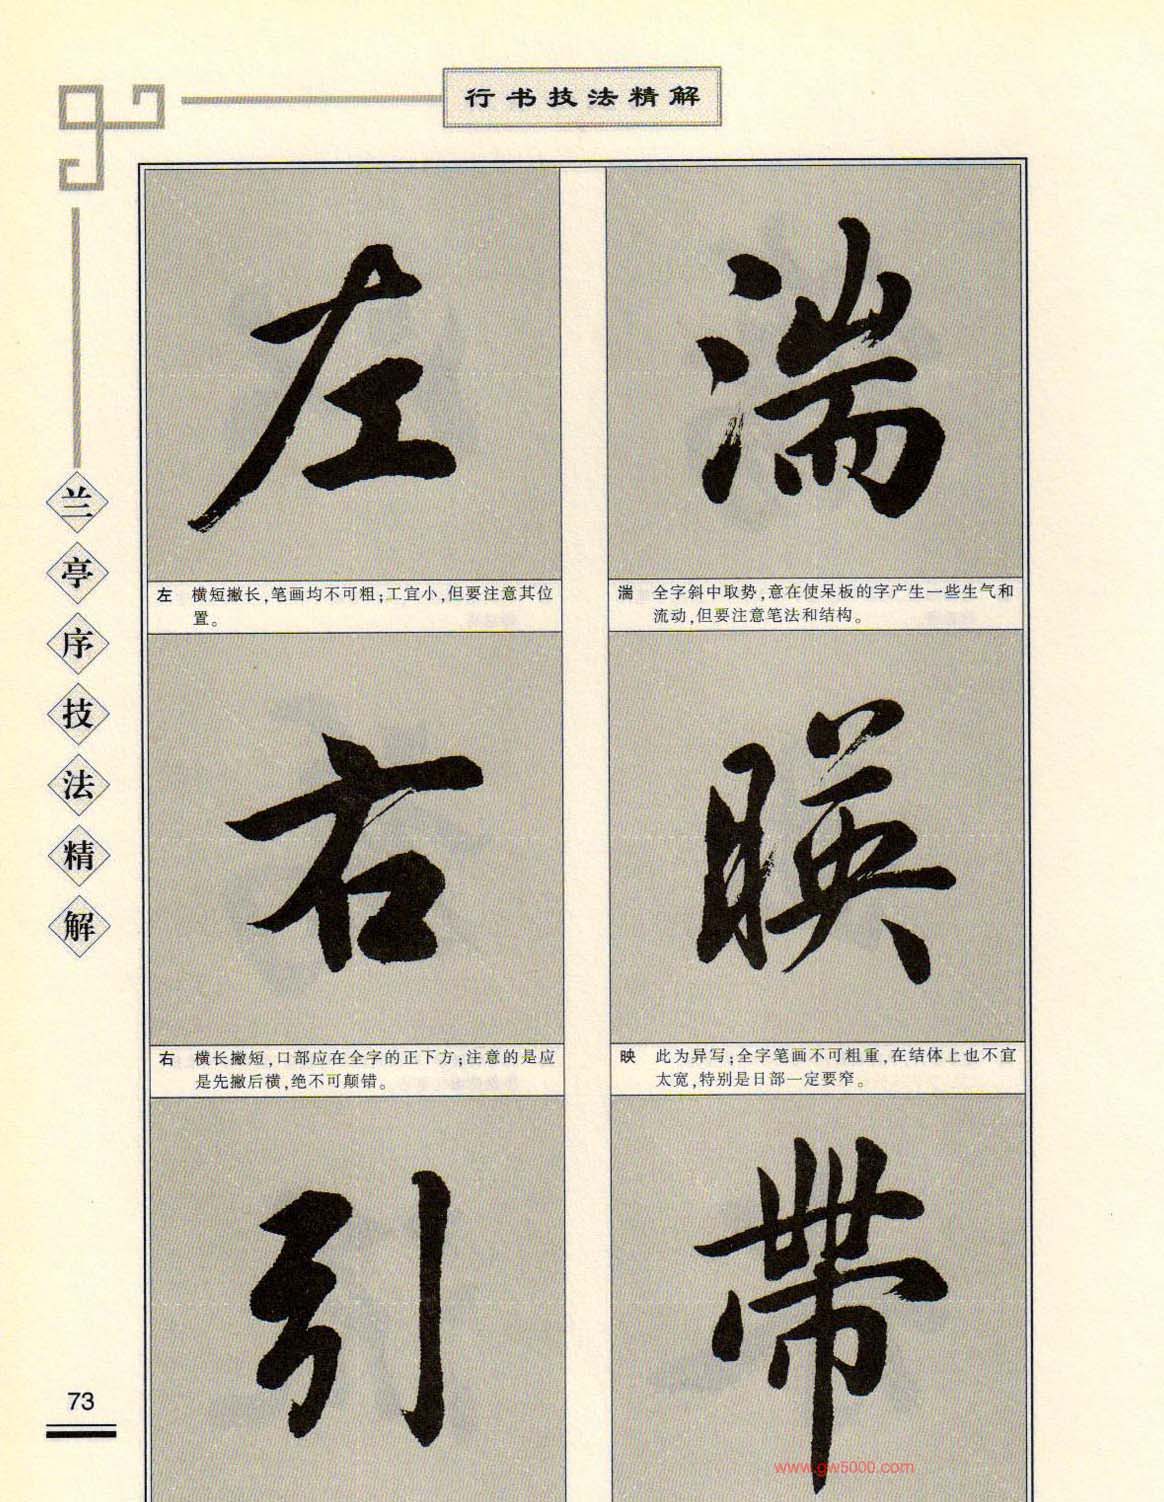 行书技法精解
兰亭序技法精解
湍
湍 全字斜中取势，意在使呆板的字产生一些生气和
流动，但要注意笔法和结构。
暎
映 此为异写；全字笔画不可粗重，在结体上也不宜
太宽，特别是日部一定要窄。
帶
左
左 横短撇长，笔画均不可粗；工宜小，但要注意其位
置。
右
右 横长撇短，口部应在全字的正下方；注意的是应
是先撇后横，绝不可颠错。
引
73
www.gw5000.com